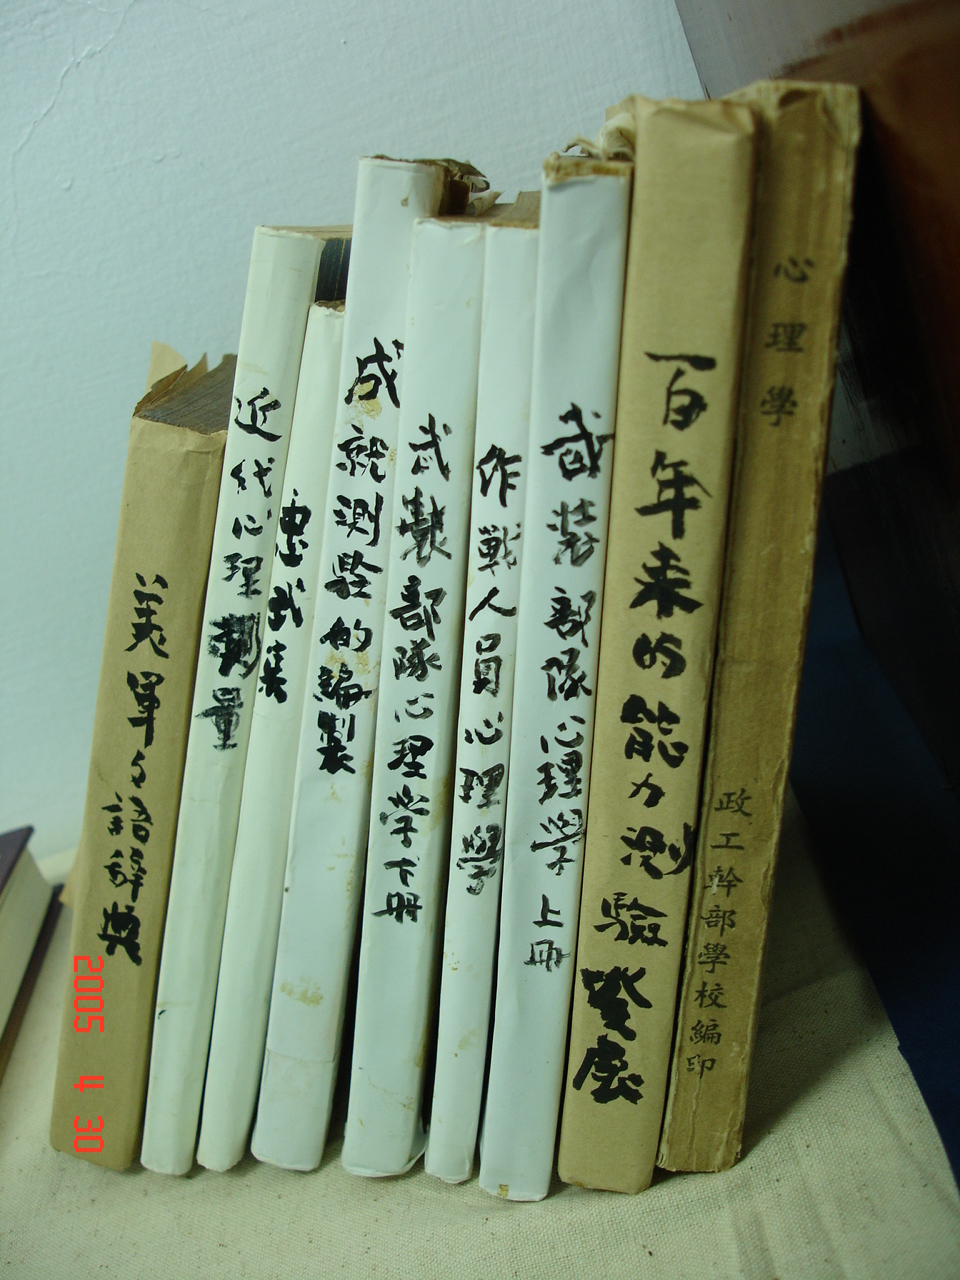 美軍々語辞典
近代心理測量
成就測驗的編製
武製部隊心理学下册
作戰人員心理學
武裝部隊心理學上冊
一百年来的能力測驗發展
心理學
政工幹部學校編印
2005 4 30